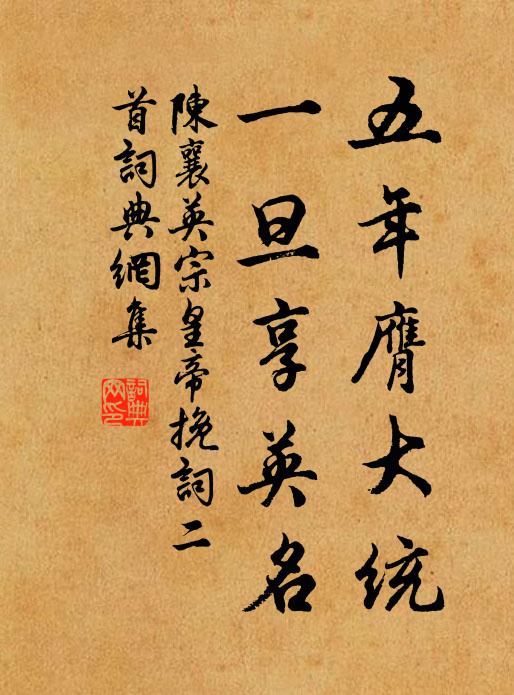 五年膺大統
一旦享英名
陳襄英宗皇帝挽詞二
首詞典網集
詞典網印